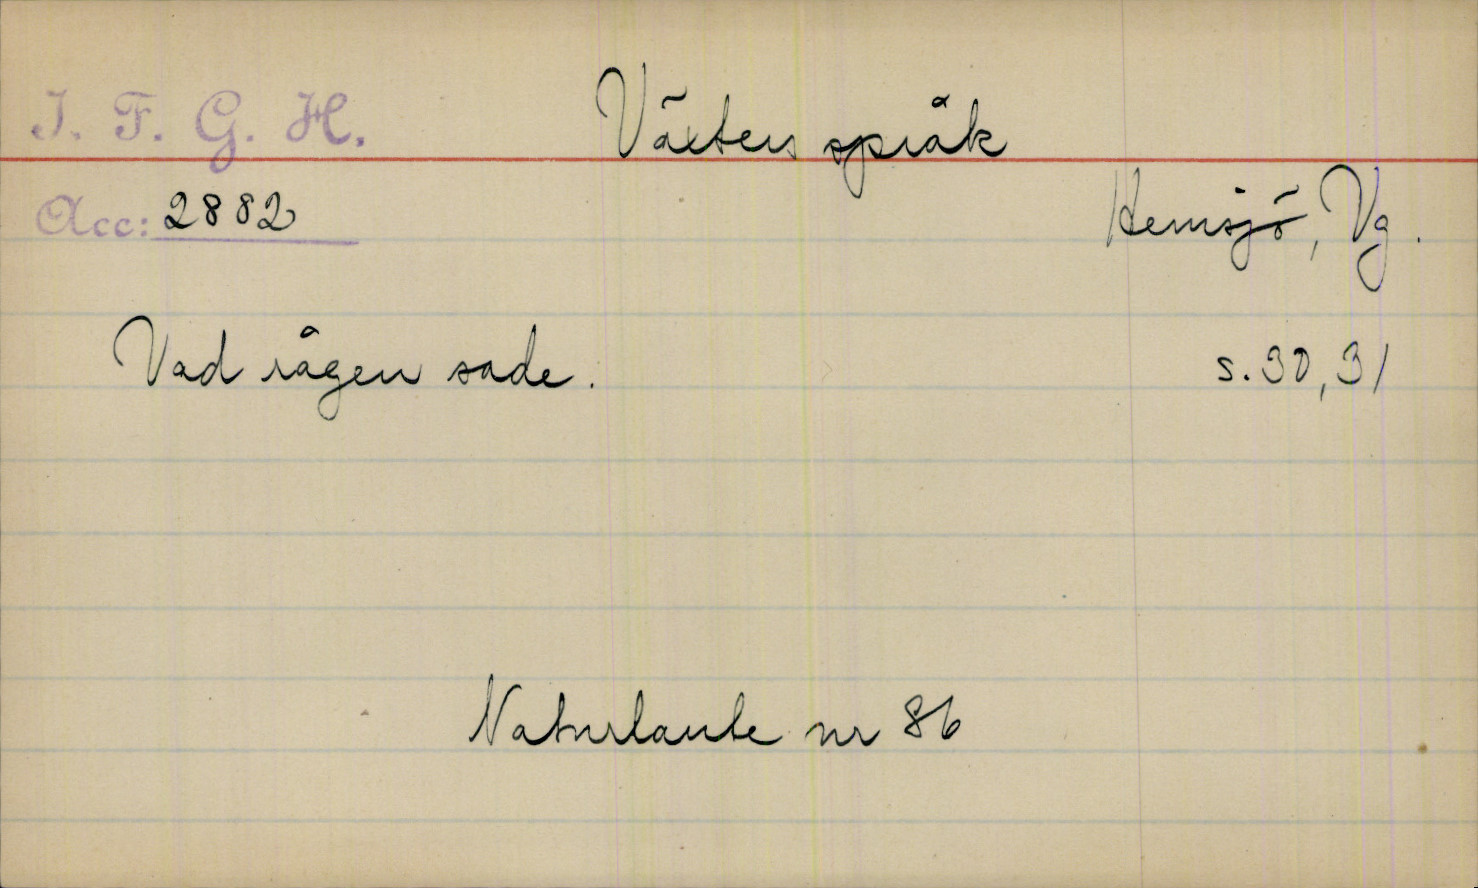 I. F. G. H.
Växters språk
Acc: 2882
Hemsjö, Vg.
Vad rågen sade.
s. 30, 31
Naturlaute nr 86